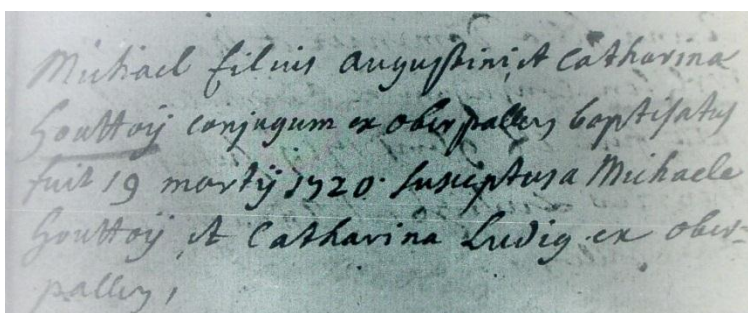 Michael filius Augustini, et Catharina
Houttoÿ conjugum ex oberpallen baptisatus
fuit 19 martÿ 1720. susceptus a Michaele
Houttoÿ et Catharina Ludig ex ober-
pallen,